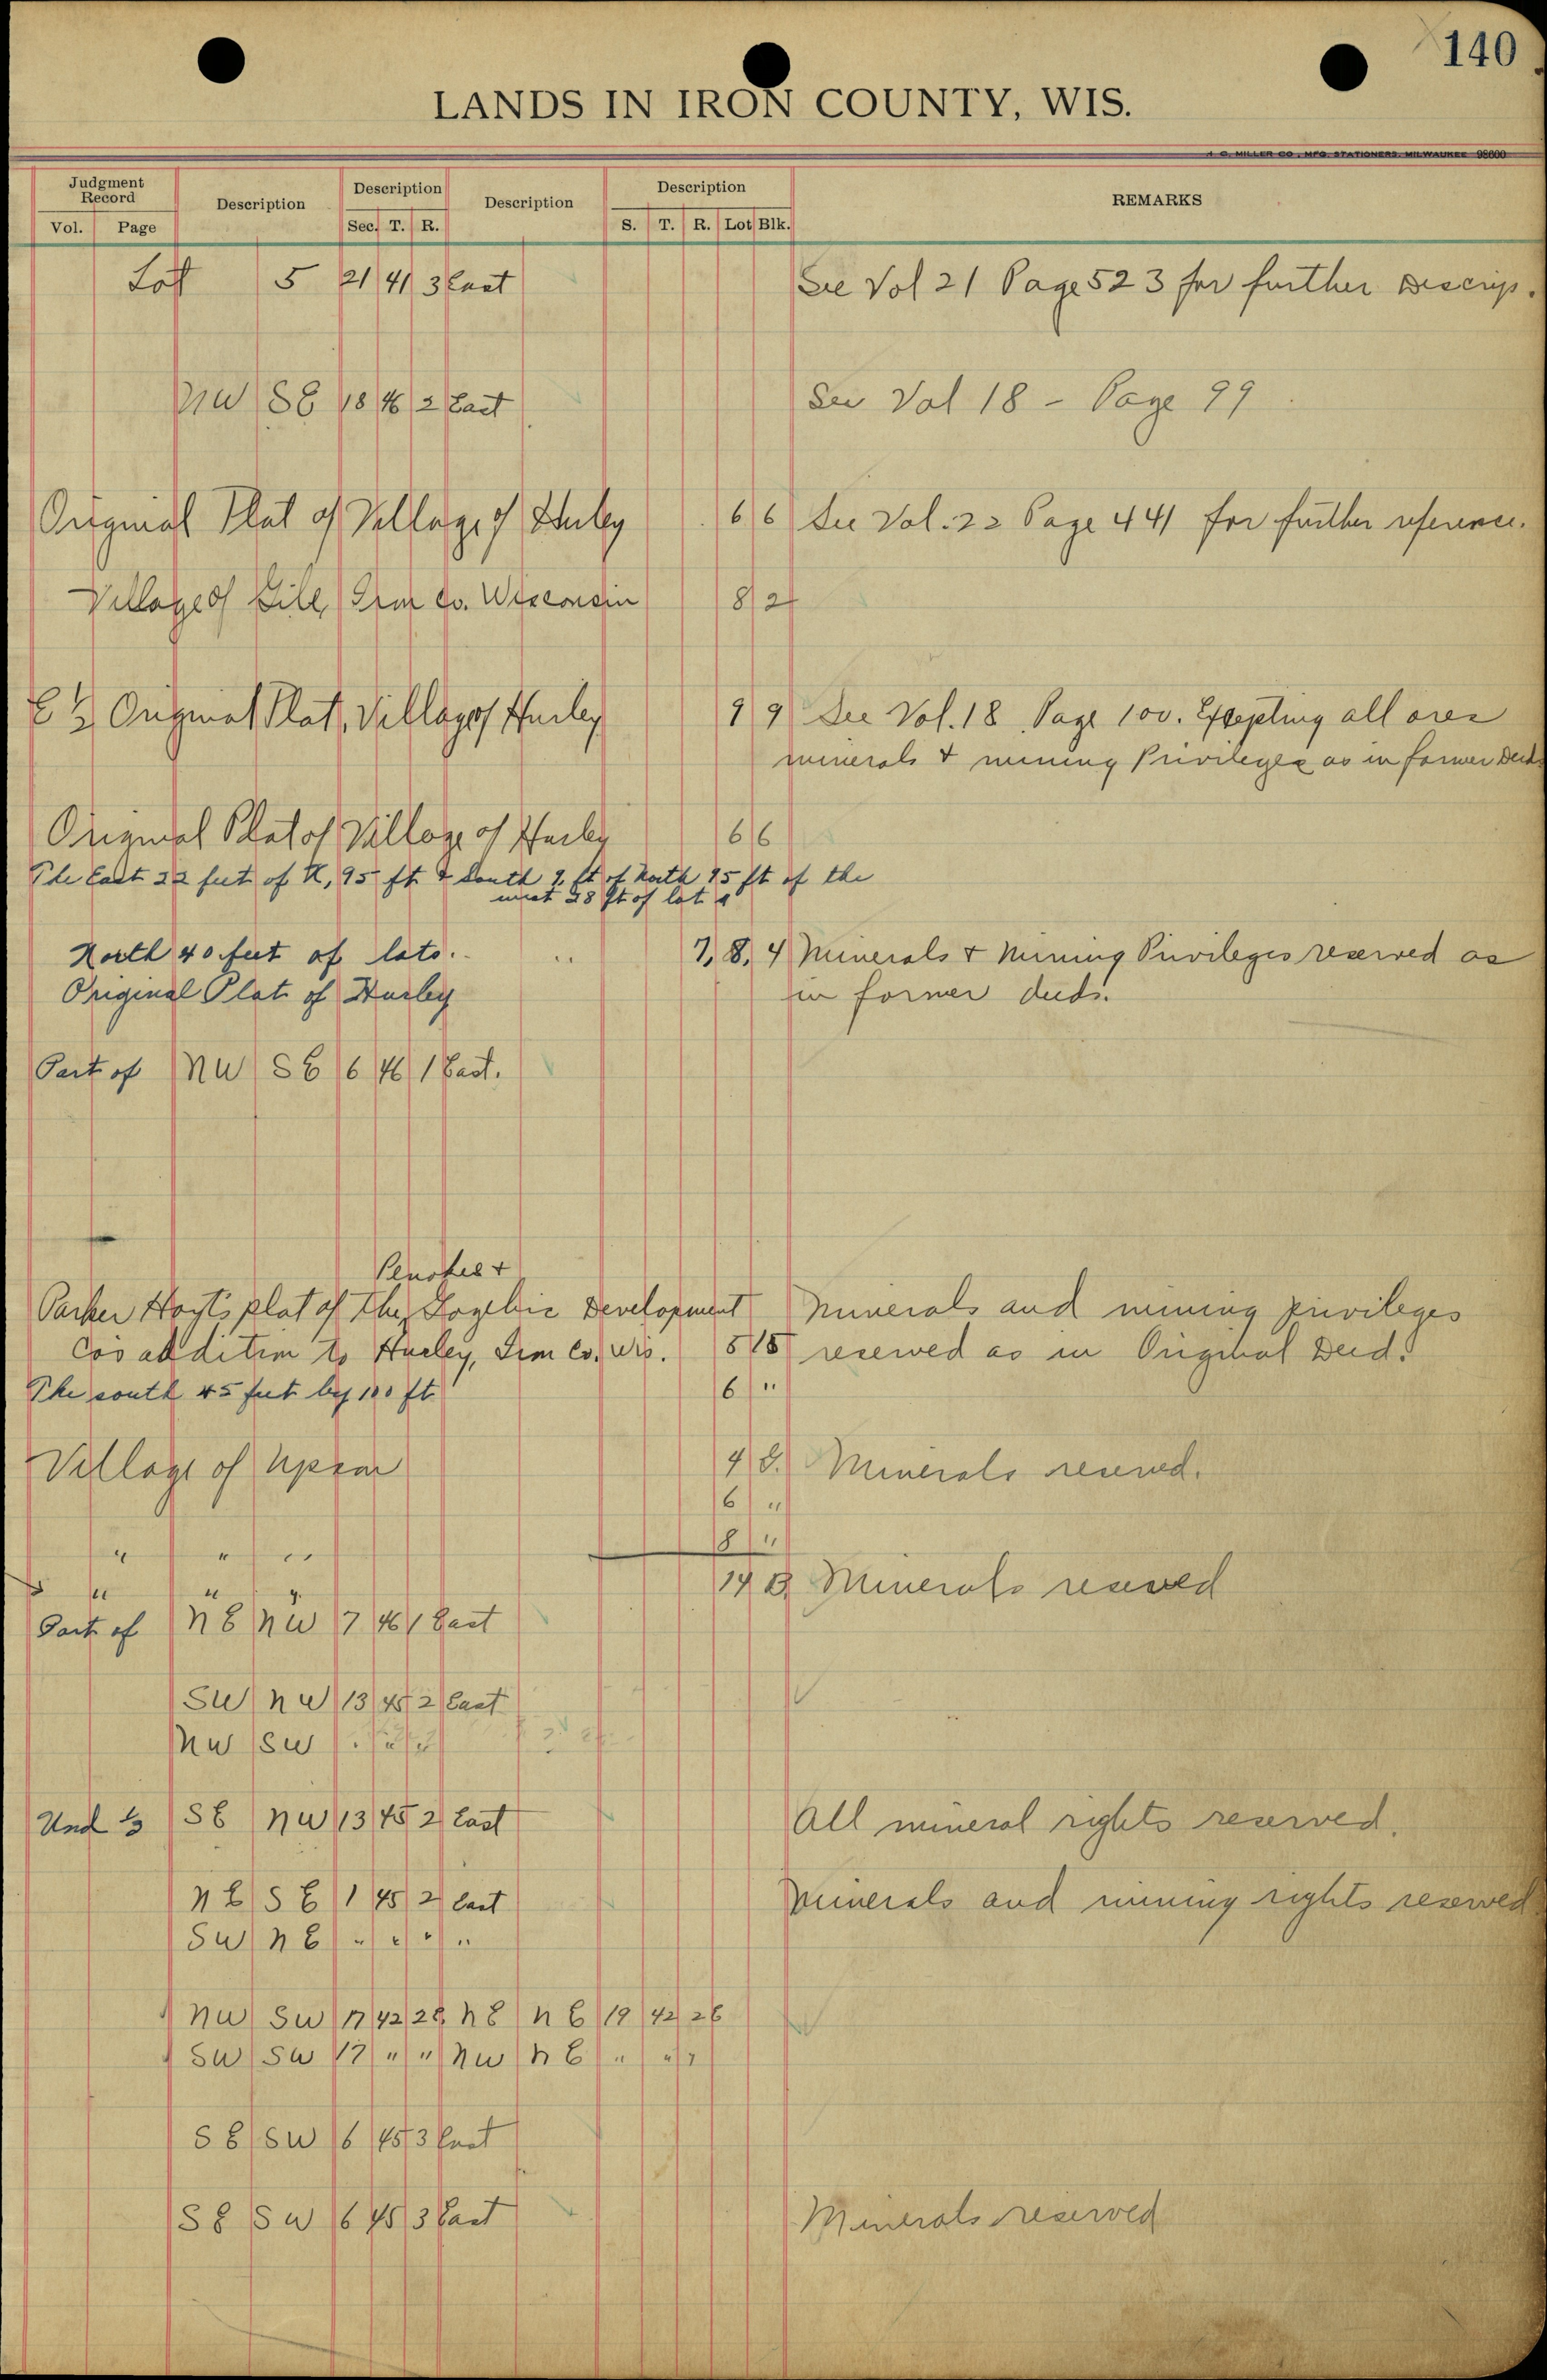 140
LANDS IN IRON COUNTY, WIS.
MILLER CO., MFG. STATIONERS, MILWAUKEE 98600
Judgment Record Description Description Description Description REMARKS
Vol. Page Sec. T. R. S. T. R. Lot Blk.
Lot 5 21 41 3 East See Vol 21 Page 523 for further Descrip.
NW SE 18 46 2 East See Vol 18 - Page 99
Original Plat of Village of Hurley 6 6 See Vol. 22 Page 441 for further reference.
Village of Gile, Iron Co. Wisconsin 8 2
E ½ Original Plat, Village of Hurley 9 9 See Vol. 18 Page 100. Excepting all ores
minerals & mining Privileges as in former Deeds
Original Plat of Village of Hurley 6 6
The East 22 feet of N, 95 ft & South ft of North 95 ft of the
west 28 ft of lot
North 40 feet of lots. " 7, 8, 4 Minerals & Mining Privileges reserved as
Original Plat of Hurley in former deeds.
Part of NW SE 6 46 1 East.
Penokee &
Parker Hoyt's plat of the Gogebic Development Minerals and mining privileges
Co's addition to Hurley, Iron Co. Wis. 5 15 reserved as in Original Deed.
The south 45 feet by 100 ft. 6 "
Village of Upson 4 8. Minerals reserved.
6 "
" " " 8 "
" " " 14 B Minerals reserved
Part of NE NW 7 46 1 East
SW NW 13 45 2 East
NW SW " " "
Und ⅓ SE NW 13 45 2 East All mineral rights reserved.
NE SE 1 45 2 East Minerals and mining rights reserved
SW NE " " " "
NW SW 17 42 2E NE NE 19 42 2E
SW SW 17 " " NW NE " " "
SE SW 6 45 3 East
SE SW 6 45 3 East Minerals reserved